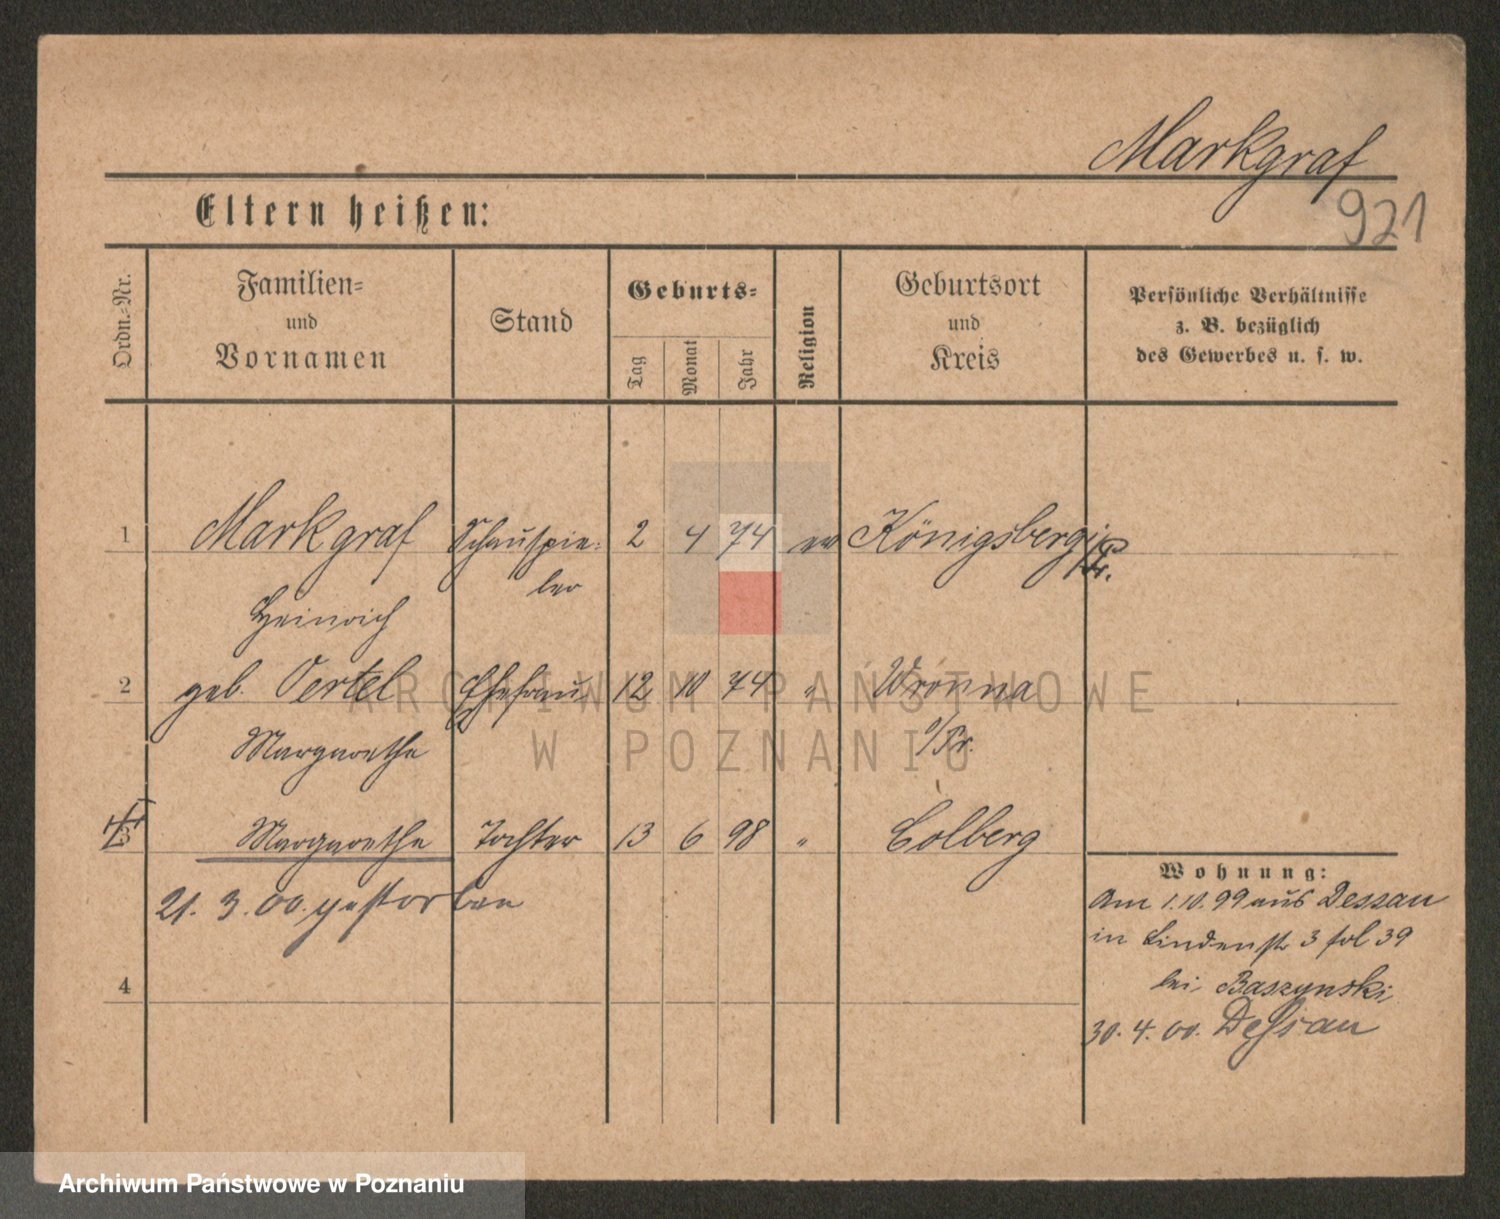 Markgraf
921
Eltern heißen:
Ordn.-Nr.
Familien-
und
Vornamen
Stand
Geburts-
Tag
Monat
Jahr
Religion
Geburtsort
und
Kreis
Persönliche Verhältnisse
z. B. bezüglich
des Gewerbes u. s. w.
1 Markgraf Schauspie- 2 4 74 ev Königsberg i/
Heinrich ler Pr.
2 geb. Oertel Ehefrau 12 10 74 " Wronna
Margarethe i/Pr.
3 Margarethe Tochter 13 6 98 " Colberg
21. 3. 00. gestorben
4
Wohnung:
Am 1.10.99 aus Dessau
in Lindenstr 3 fol 39
bei Baszynski
30. 4. 00. Dessau
ARCHIWUM PAŃSTWOWE
W POZNANIU
Archiwum Państwowe w Poznaniu